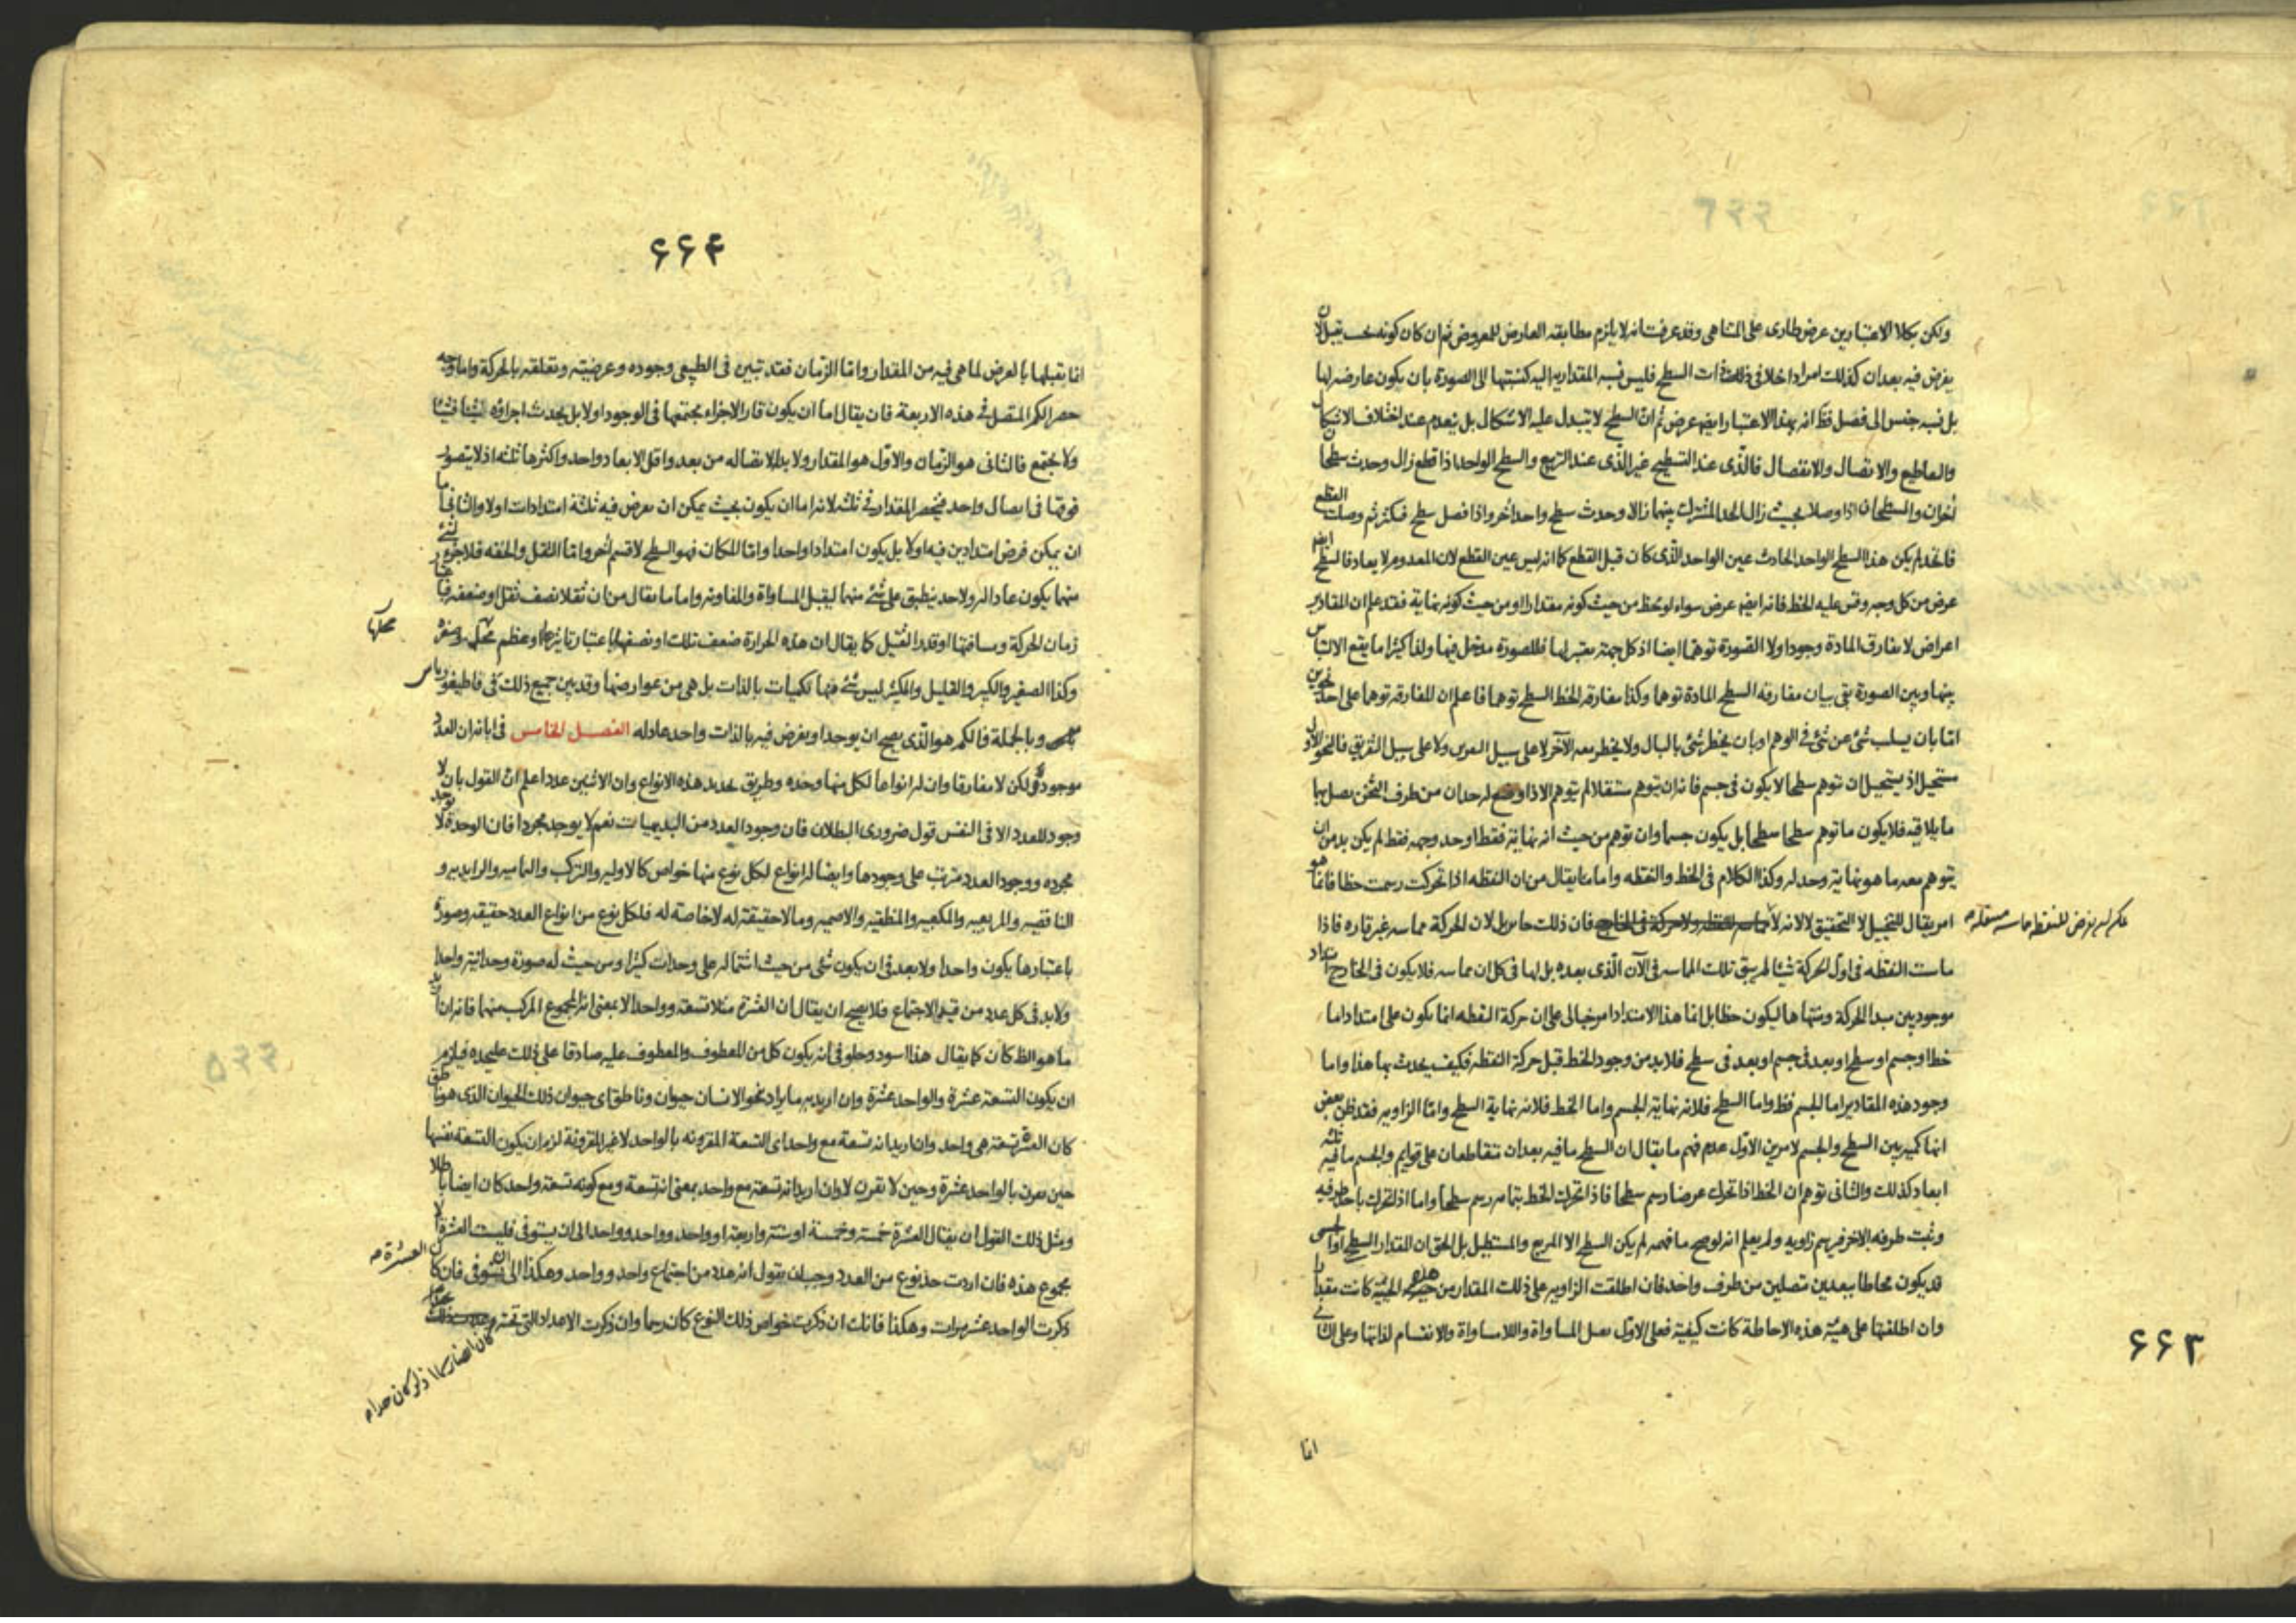 ولكن بكلا الاعتبارين عرض طارى على المتناهى وقد عرفت انه لا يلزم مطابقه العارض للمعروض ثم ان كان كونه بحيث يقبل ان
يفرض فيه بعدان كذلك امرا داخلا فى ذلك ذات السطح فليس نسبه المقداريه اليه كنسبتها الى الصورة بان يكون عارضه لها
بل نسبه جنس الى فصل فظ انه بهذا الاعتبار ايضا عرض ثم ان السطح لا يتبدل عليه الاشكال بل ينعدم عند اختلاف الاشكال
والتقاطيع والاتصال والانفصال فالذى عند التسطيح غير الذى عند التربيع والسطح الواحد اذا قطع زال وحدث سطحان
اخران والسطحان اذا وصلا بحيث زال الحد المشترك بينهما زالا وحدث سطح واحد اخر واذا فصل سطح فكثر ثم وصلت القطع
فاتحد لم يكن هذا السطح الواحد الحادث عين الواحد الذى كان قبل القطع كما انه ليس عين القطع لان المعدوم لا يعاد فالسطح ايضا
عرض من كل وجه وقس عليه الخط فانه ايضا عرض سواء لوحظ من حيث كونه مقدارا او من حيث كونه نهاية فقد علم ان المقادير
اعراض لا تفارق المادة وجودا ولا الصورة توهما ايضا اذ كل جهة يعتبر لها فللصورة مدخل فيها ولذا كثيرا ما يقع الالتباس
بينها وبين الصورة بقى بيان مفارقه السطح المادة توهما وكذا مفارقه الخط السطح توهما فاعلم ان المفارقه توهما على احد نحوين
اما بان يسلب شئ عن شئ فى الوهم او بان يخطر شئ بالبال ولا يخطر معه الآخر لا على سبيل ولا على سبيل التفريق فالنحو الاول
مستحيل اذ يستحيل ان توهم سطحا لا يكون فى جسم فانه ان يتوهم مستقلا لم يتوهم الا اذا وضع له حدان من طرف الثخن يصل بها
ما يلاقيه فلا يكون ما توهم سطحا سطحا بل يكون جسما وان توهم من حيث انه نهاية فقط او حد وجهه فقط لم يكن بد من ان
يتوهم معه ما هو نهاية وحد له وكذا الكلام فى الخط والنقطه واما ما يقال من ان النقطه اذا تحركت رسمت خطا فانما هو
امر يقال للتخييل لا التحقيق لا لانه لا فان ذلك جايز بل لان الحركة مماسه غير قاره فاذا
ماست النقطه فى اول الحركة شيئا لم يبق تلك المماسه فى الآن الذى بعده بل لها فى كل ان مماسه فلا يكون فى الخارج امتداد
موجود بين مبدا الحركة ومنتهاها ليكون خطا بل انما هذا الامتداد امر خيالى على ان حركة النقطه انما يكون على امتداد اما
خط او جسم او سطح او بعد فى جسم او بعد فى سطح فلا بد من وجود الخط قبل حركة النقطه فكيف يحدث بها هذا واما
وجود هذه المقادير اما الجسم فظ واما السطح فلانه نهاية الجسم واما الخط فلانه نهاية السطح واما الزاويه فقد ظن بعض
انها كميه بين السطح والجسم لامرين الاول عدم فهم ما يقال ان السطح ما فيه بعدان يتقاطعان على قوايم والجسم ما فيه ثلثه
ابعاد كذلك والثانى توهم ان الخط اذا تحرك عرضا رسم سطحا فاذا تحرك الخط بتمامه رسم سطحا واما اذا تحرك باحد طرفيه
وثبت طرفه الاخر فيرسم زاويه ولم يعلم انه لو صح ما فهمه لم يكن السطح الا المربع والمستطيل بل الحق ان المقدار السطح او الجسمى
قد يكون محاطا ببعدين متصلين من طرف واحد فان اطلقت الزاويه على ذلك المقدار من هذه الحيثية كانت مقدارا
وان اطلقتها على هيئة هذه الاحاطة كانت كيفية فعلى الاول يقبل المساواة واللامساواة والانقسام لذاتها وعلى الثانى
انما
۶۶۳
۶۶۴
انما يقبلها بالعرض لما هى فيه من المقدار واما الزمان فقد تبين فى الطبيعى وجوده وعرضيته وتعلقه بالحركة واما وجه
حصر الكم المتصل فى هذه الاربعة فان يقال اما ان يكون قار الاجزاء مجتمعها فى الوجود اولا بل يحدث اجزاؤه شيئا فشيئا
ولا يجتمع فالثانى هو الزمان والاول هو المقدار ولا بد لاتصاله من بعد واقل الابعاد واحد واكثرها ثلثه اذ لا يتصور
فوقها فى اتصال واحد فينحصر المقدار فى ثلثه لانه اما ان يكون بحيث يمكن ان يفرض فيه ثلثة امتدادات اولا والثانى اما
ان يمكن فرض امتدادين فيه اولا بل يكون امتدادا واحدا واما المكان فهو السطح لا قسم اخر واما الثقل والخفه فلا جزء لشئ
منها يكون عادا له ولا حد ينطبق على شئ منهما ليقبل المساواة والمفاوته واما ما يقال من ان ثقلا نصف ثقل او ضعفه فباعتبار
زمان الحركة ومسافتها او قدر الثقيل كما يقال ان هذه الحرارة ضعف تلك او نصفها باعتبار تاثيرها وعظم محلها وصغر محلها
وكذا الصغير والكبير والقليل والكثير ليس شئ منها كميات بالذات بل هى من عوارضها وقد بين جميع ذلك فى قاطيغورياس
وبالجملة فالكم هو الذى يصح ان يوجد او يفرض فيه بالذات واحد عاد له الفصل الخامس فى ابانه ان العدد
موجود ولكن لا مفارقا وان له انواعا لكل منها وحده وطريق تحديد هذه الانواع وان الاثنين عدد اعلم ان القول بان لا
وجود للعدد الا فى النفس قول ضرورى البطلان فان وجود العدد من البديهيات نعم لا يوجد مجردا فان الوحدة لا توجد
مجرده ووجود العدد مترتب على وجودها وايضا له انواع لكل نوع منها خواص كالاوليه والتركب والتماميه والزايديه و
الناقصيه والمربعيه والمكعبيه والمنطقيه والاصميه وما لا حقيقة له لا خاصة له فلكل نوع من انواع العدد حقيقه وصورة
باعتبارها يكون واحدا ولا بعد فى ان يكون شئ من حيث اشتماله على وحدات كثيرا ومن حيث له صورة وحدانية واحدا
ولا بد فى كل عدد من قيد الاجتماع فلا يصح ان يقال ان العشرة مثلا تسعة وواحد الا بمعنى انه المجموع المركب منهما فانه ان اريد
ما هو الظ كان كما يقال هذا اسود وحلو فى انه يكون كل من المعطوف والمعطوف عليه صادقا على ذلك عليحده فيلزم
ان يكون التسعة عشرة والواحد عشرة وان اريد به ما يراد نحو الانسان حيوان وناطق اى حيوان ذلك الحيوان الذى هو ناطق
كان العشرة تسعة هى واحد وان اريد انه تسعة مع واحد اى التسعة المقرونه بالواحد لا غير المقرونة لزم ان يكون التسعة نفسها
حين تقرن بالواحد عشرة وحين لا تقرن لا وان اريد انه تسعة مع واحد بمعنى انه تسعة ومع كونه تسعة واحد كان ايضا باطلا
ومثل ذلك القول ان يقال العشرة خمسة وخمسة او ستة واربعة او واحد وواحد وواحد الى ان يستوفى فليست العشرة الا
مجموع هذه فان اردت حد نوع من العدد وجب ان يقول انه عدد من اجتماع واحد وواحد وهكذا الى ان يستوفى فان كان العشرة
ذكرت الواحد عشر مرات وهكذا فانك ان ذكرت خواص ذلك النوع كان رسما وان ذكرت الاعداد التى تحته
كان ايضا رسما